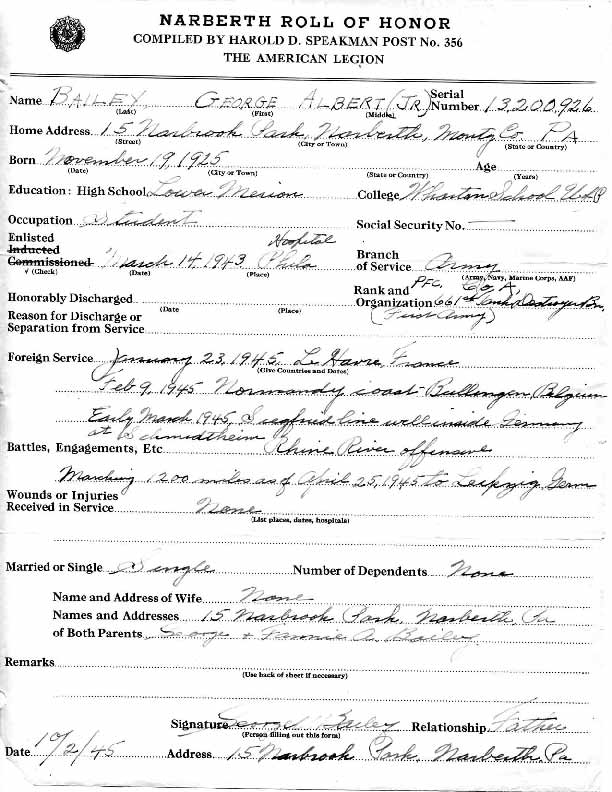 NARBERTH ROLL OF HONOR
COMPILED BY HAROLD D. SPEAKMAN POST No. 356
THE AMERICAN LEGION
Name BAILEY, GEORGE ALBERT (JR) Serial Number 13,200,926
(Last) (First) (Middle)
Home Address 15 Narbrook Park, Narberth, Montg Co PA
(Street) (City or Town) (State or Country)
Born November 19, 1925 Age
(Date) (City or Town) (State or Country) (Years)
Education: High School Lower Merion College Wharton School U of P
Occupation Student Social Security No. —
Enlisted
Inducted
Commissioned March 14, 1943 Hospital Phila Branch of Service Army
√ (Check) (Date) (Place) (Army, Navy, Marine Corps, AAF)
Honorably Discharged Rank and Organization PFC. Co A, 661st Tank Destroyer Bn.
(Date (Place) (First Army)
Reason for Discharge or
Separation from Service
Foreign Service January 23, 1945 Le Havre, France
(Give Countries and Dates)
Feb 9, 1945 Normandy coast Bullengen, Belgium
Early March 1945, Siegfried line well inside Germany
at Schmidtheim
Battles, Engagements, Etc Rhine River offensive
Marching 1200 miles as of April 25, 1945 to Leipzig Germ
Wounds or Injuries
Received in Service None
(List places, dates, hospitals)
Married or Single Single Number of Dependents None
Name and Address of Wife None
Names and Addresses 15 Narbrook Park, Narberth, Pa
of Both Parents George + Fannie A. Bailey
Remarks
(Use back of sheet if necessary)
Signature George Bailey Relationship Father
(Person filling out this form)
Date 10/2/45 Address 15 Narbrook Park, Narberth, Pa